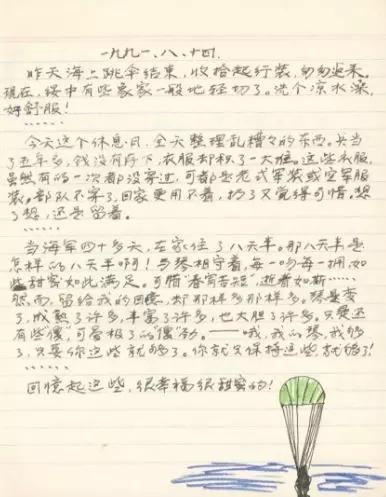 一九九一、八、十四.
昨天海上跳伞结束,收拾起行装,匆匆返来。
现在,绥中有些象家一般地轻切了。洗个凉水澡,
好舒服!
……
今天这个休息日,全天整理乱糟々的东西。兵当
了五年多,钱没有存下,衣服却积了一大堆。这些衣服,
虽然有的一次都没穿过,可都是老式军装或空军服
装。部队不穿了,回家更用不着,扔了又觉得可惜,想
了想,还是留着。
……
当海军四十多天,在家住了八天半。那八天半是
怎样的八天半啊!与琴相守着,每一吻每一拥如
甜蜜如此满足。可惜"春宵苦短",逝者如斯……
然而,留给我的回忆,却那样多那样多。琴是变
了,成熟了许多,丰富了许多,也大胆了许多。只是还
有些"傻",可爱极了的"傻"劲。——哦,我的琴,我够
了,只要你这些就够了。你就只保持这些,就够了!
……
回忆起这些,很幸福很甜蜜的!